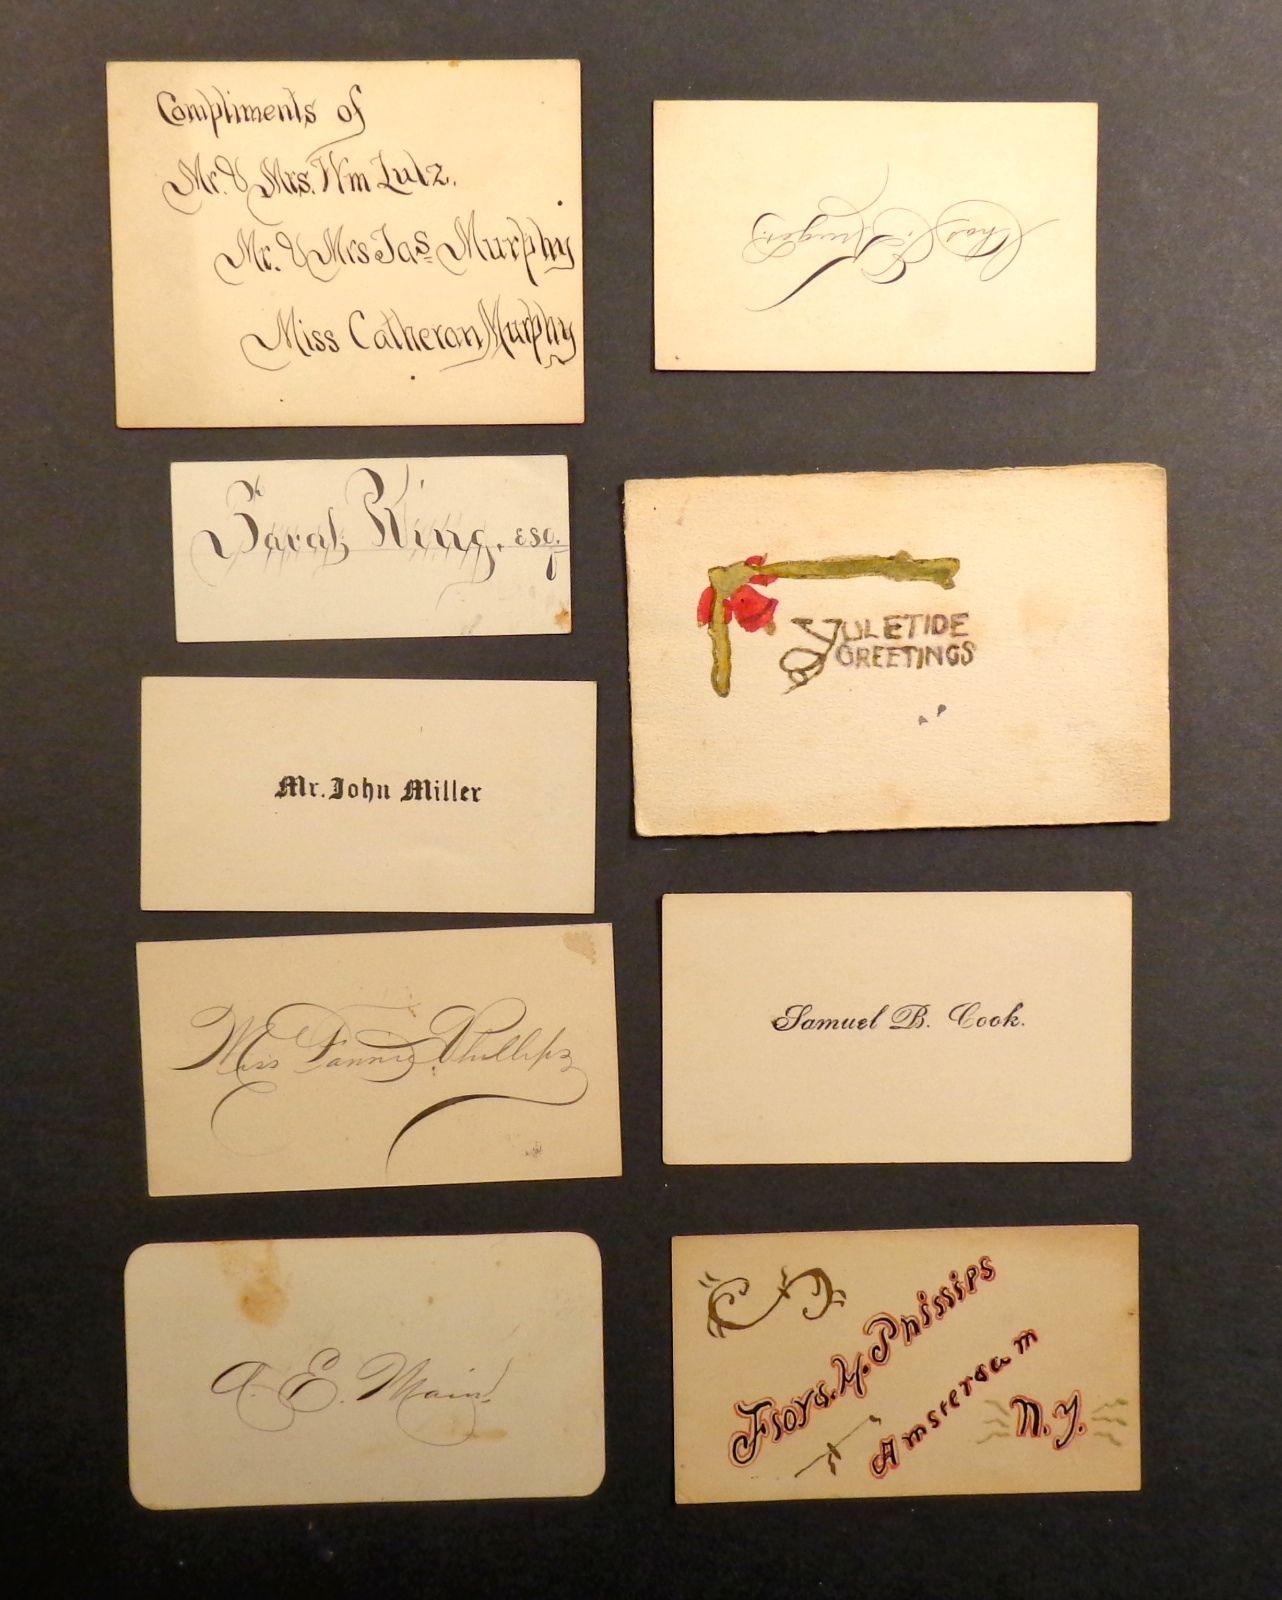 Compliments of
Mr. & Mrs. Wm Lutz.
Mr. & Mrs Jas Murphy
Miss Catheran Murphy
Sarah King, ESQ.
Mr. John Miller
Miss Fannie Phillips
A. E. Main
Chas. E. Kruger.
YULETIDE
GREETINGS
Samuel B. Cook.
Phillips
Amsterdam
N.Y.